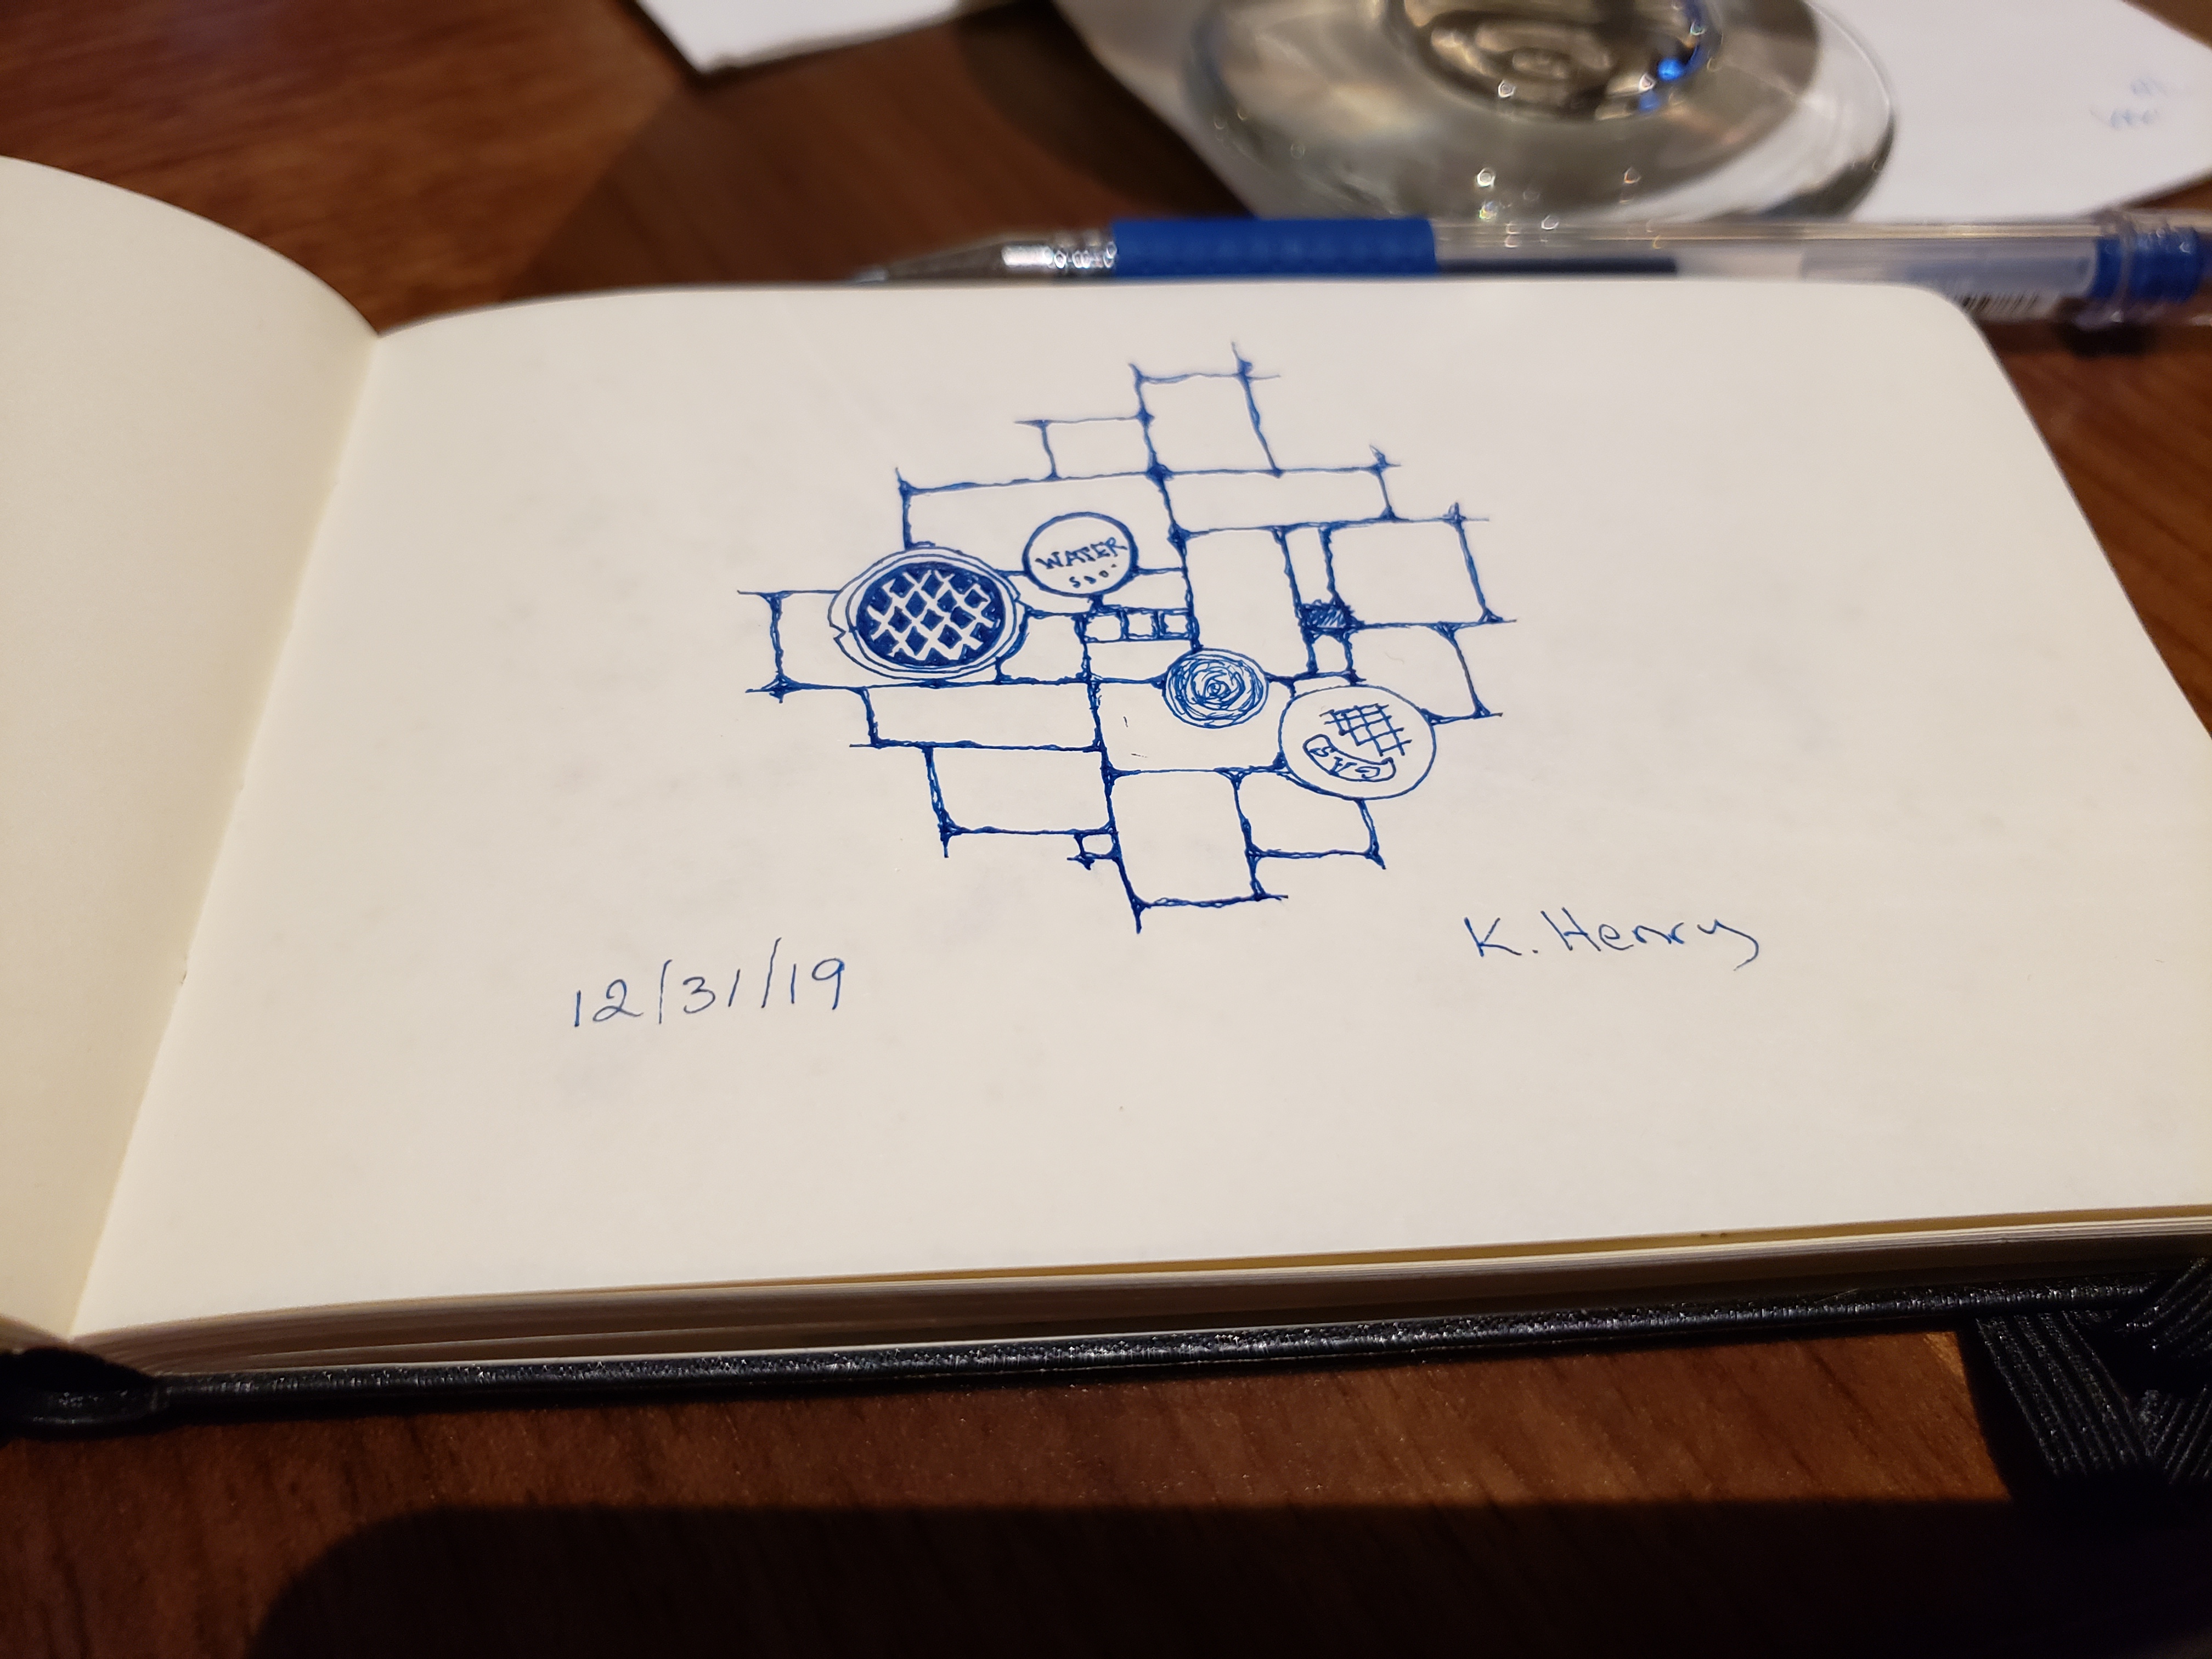 WATER
GAS
12/31/19
K. Henry